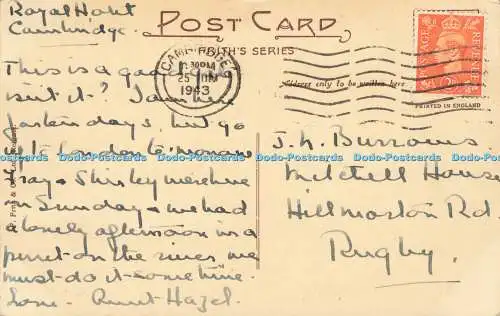 Royal Hotel
Cambridge.
POST CARD
FRITH'S SERIES
Address only to be written here
CAMBRIDGE
25 JUN
1943
POSTAGE
REVENUE
PRINTED IN ENGLAND
This is a good
isn't it? I am here
for ten days but go
up to London tomorrow
Jay & Shirley were here
on Sunday & we had
a lovely afternoon in a
punt on the river, we
must do it sometime.
Love Aunt Hazel.
J. H. Burrows
Mitchell House
Hillmorton Rd
Rugby.
F. Frith & Co
Dodo-Postcards Dodo-Postcards Dodo-Postcards Dodo-Postcards Dodo-Postcards Dodo-Postcards